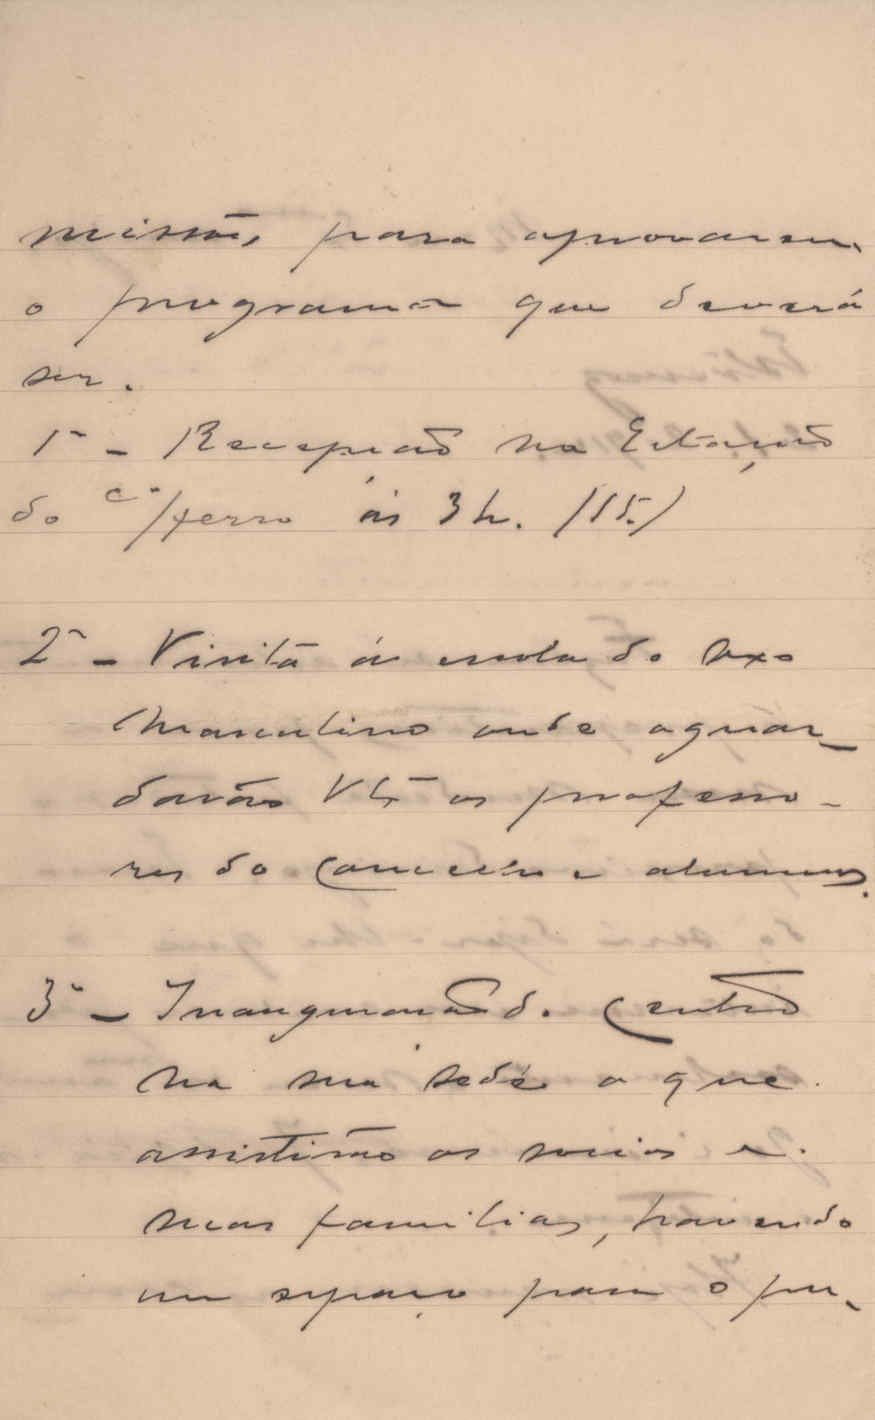 missões para aprovarem
o programa que deverá
ser.
1º - Recepção na Estação
do cº/ferro ás 3 h. (15.)
2º - Visita á escola do sexo
masculino onde aguar-
darão Vª os professo-
res do Concelho e alumnos.
3º - Inauguração do Centro
na sua séde a que
assistirão os socios e
suas familias, havendo
um espaço para o pu-